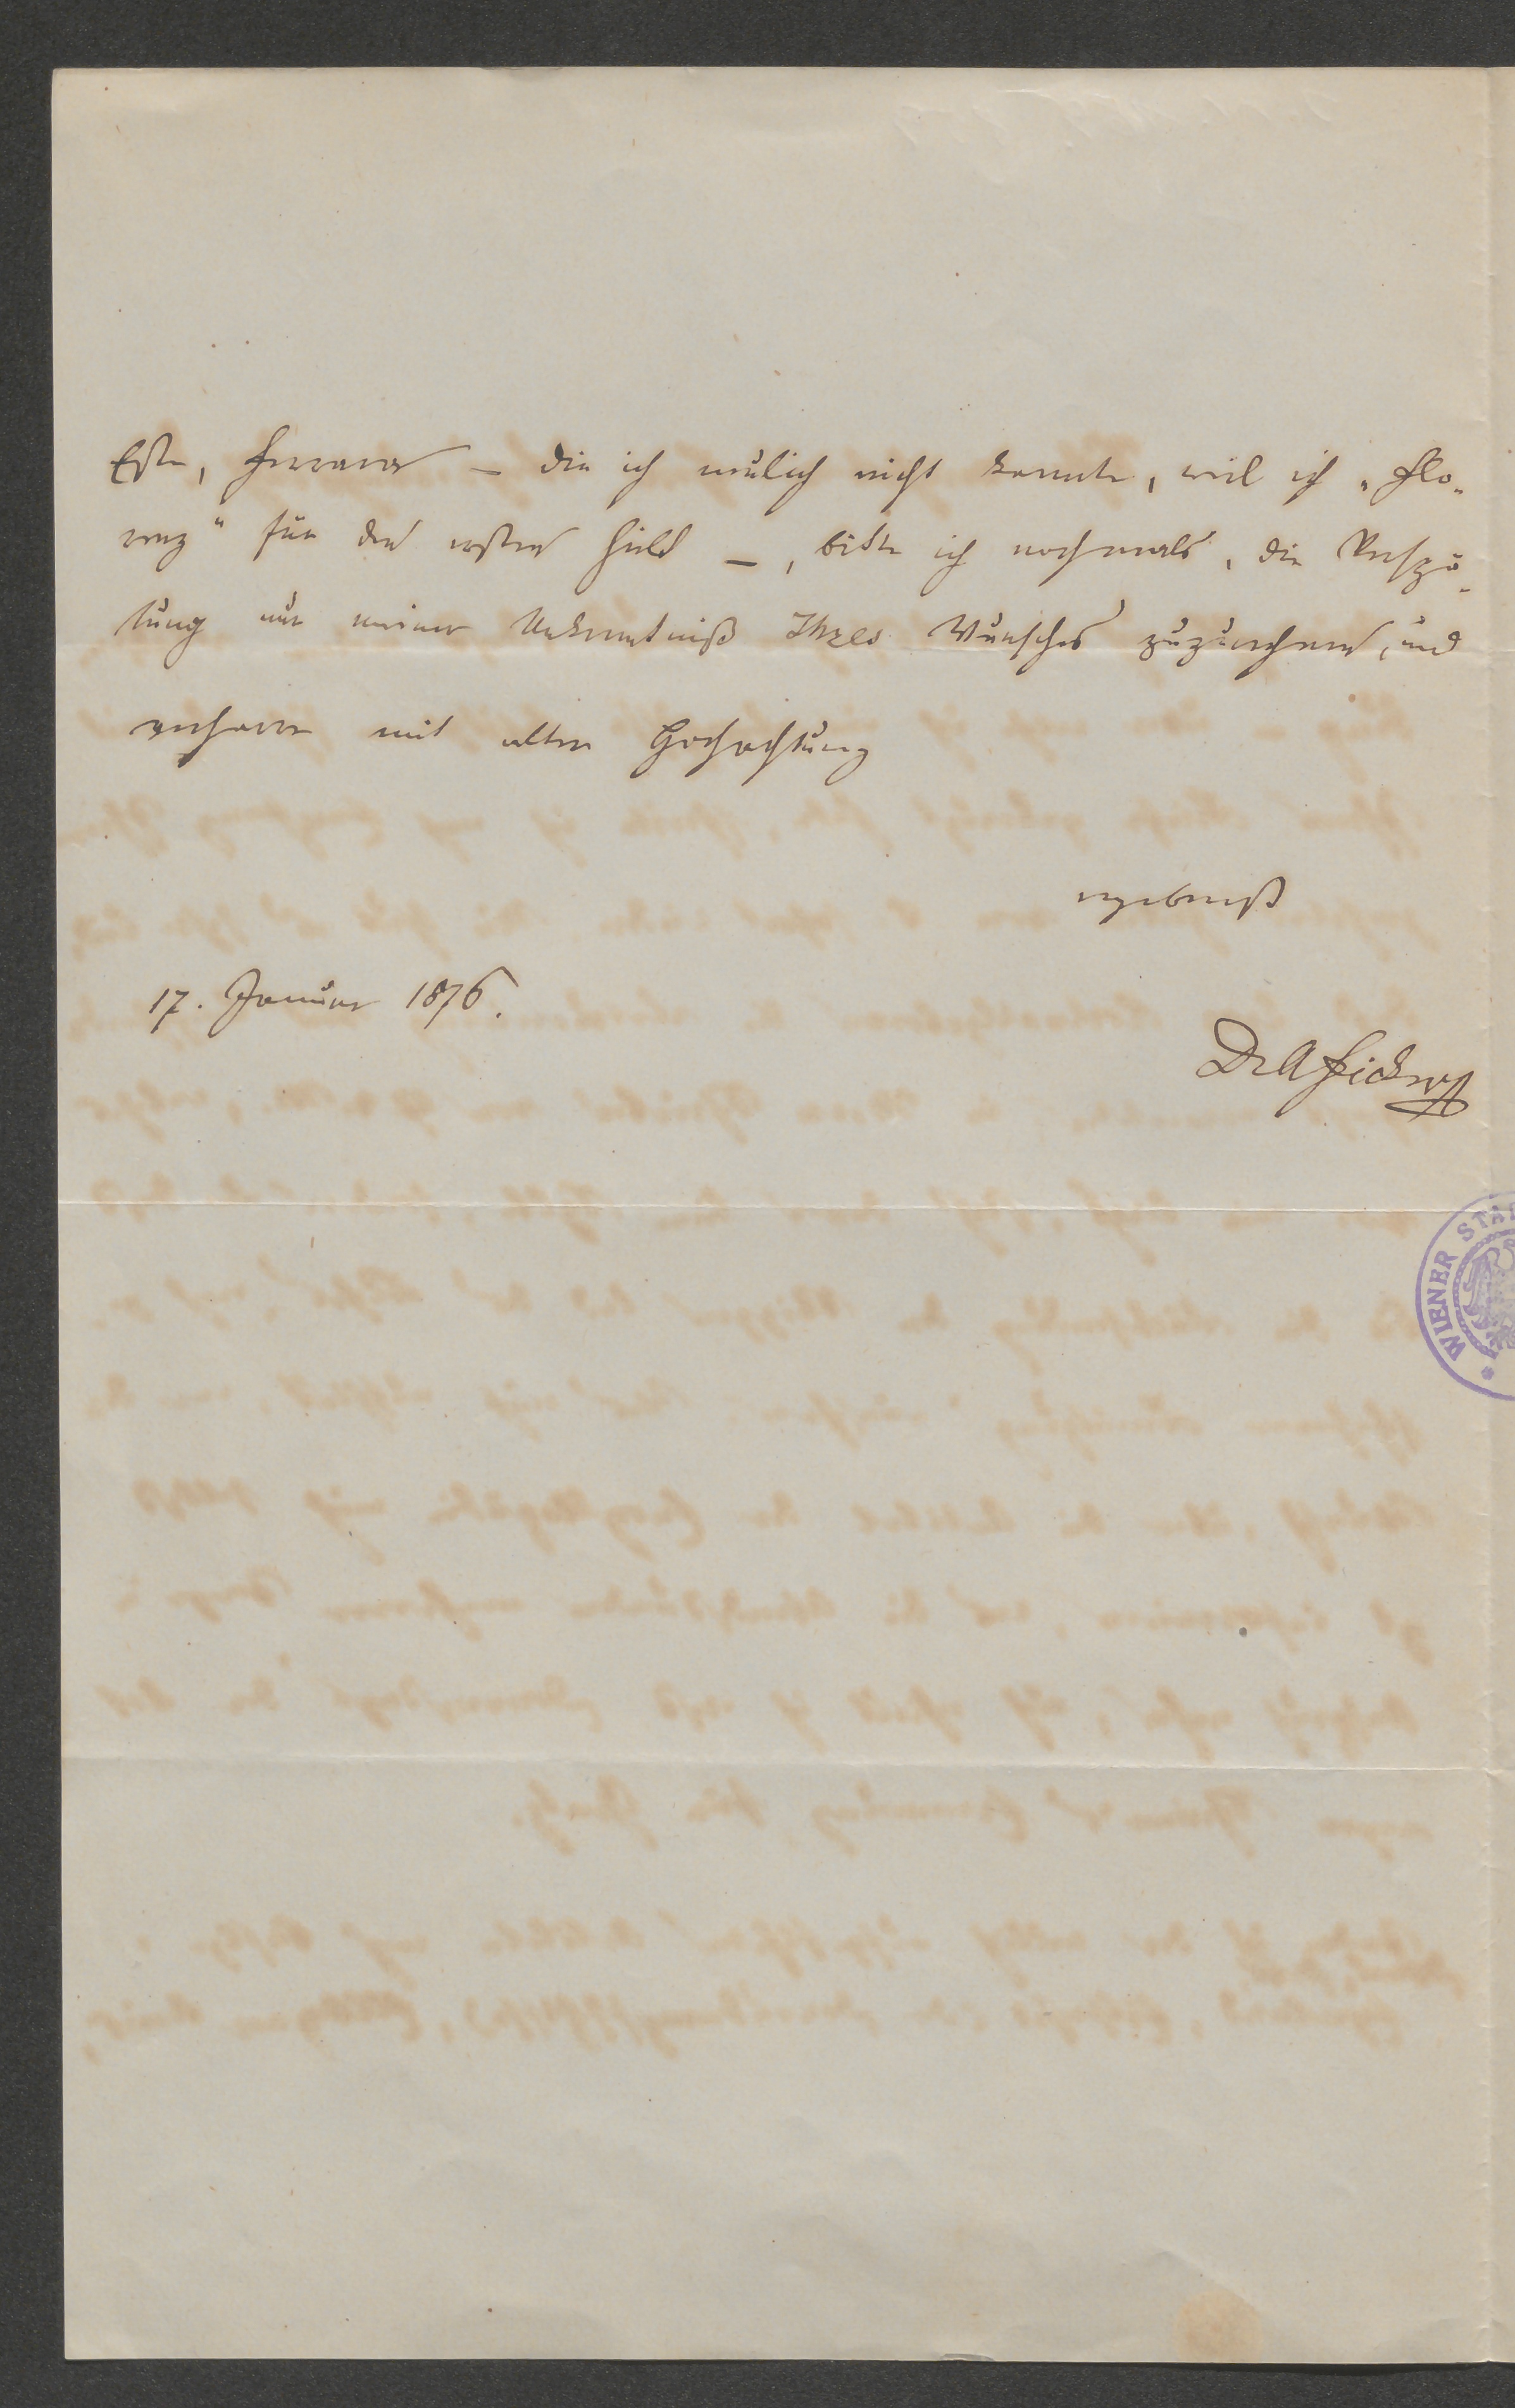 Este, Ferrara – die ich neulich nicht kannte, weil ich „Flo-
renz“ für den ersten hielt –, bitte ich nochmals, die Verspä-
tung nur meiner Unkenntniß Ihres Wunsches zuzurechnen, und
verharre mit alter Hochachtung
ergebenst
17. Januar 1876.
Dr A Ficker
WIENER STA